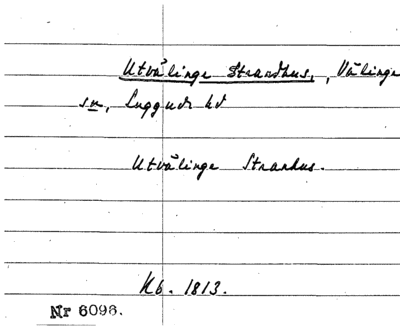 Utvälinge Strandhus, , Välinge
sn, Luggude hd
Utvälinge Strandus.
Kb. 1813.
Nr 6096.